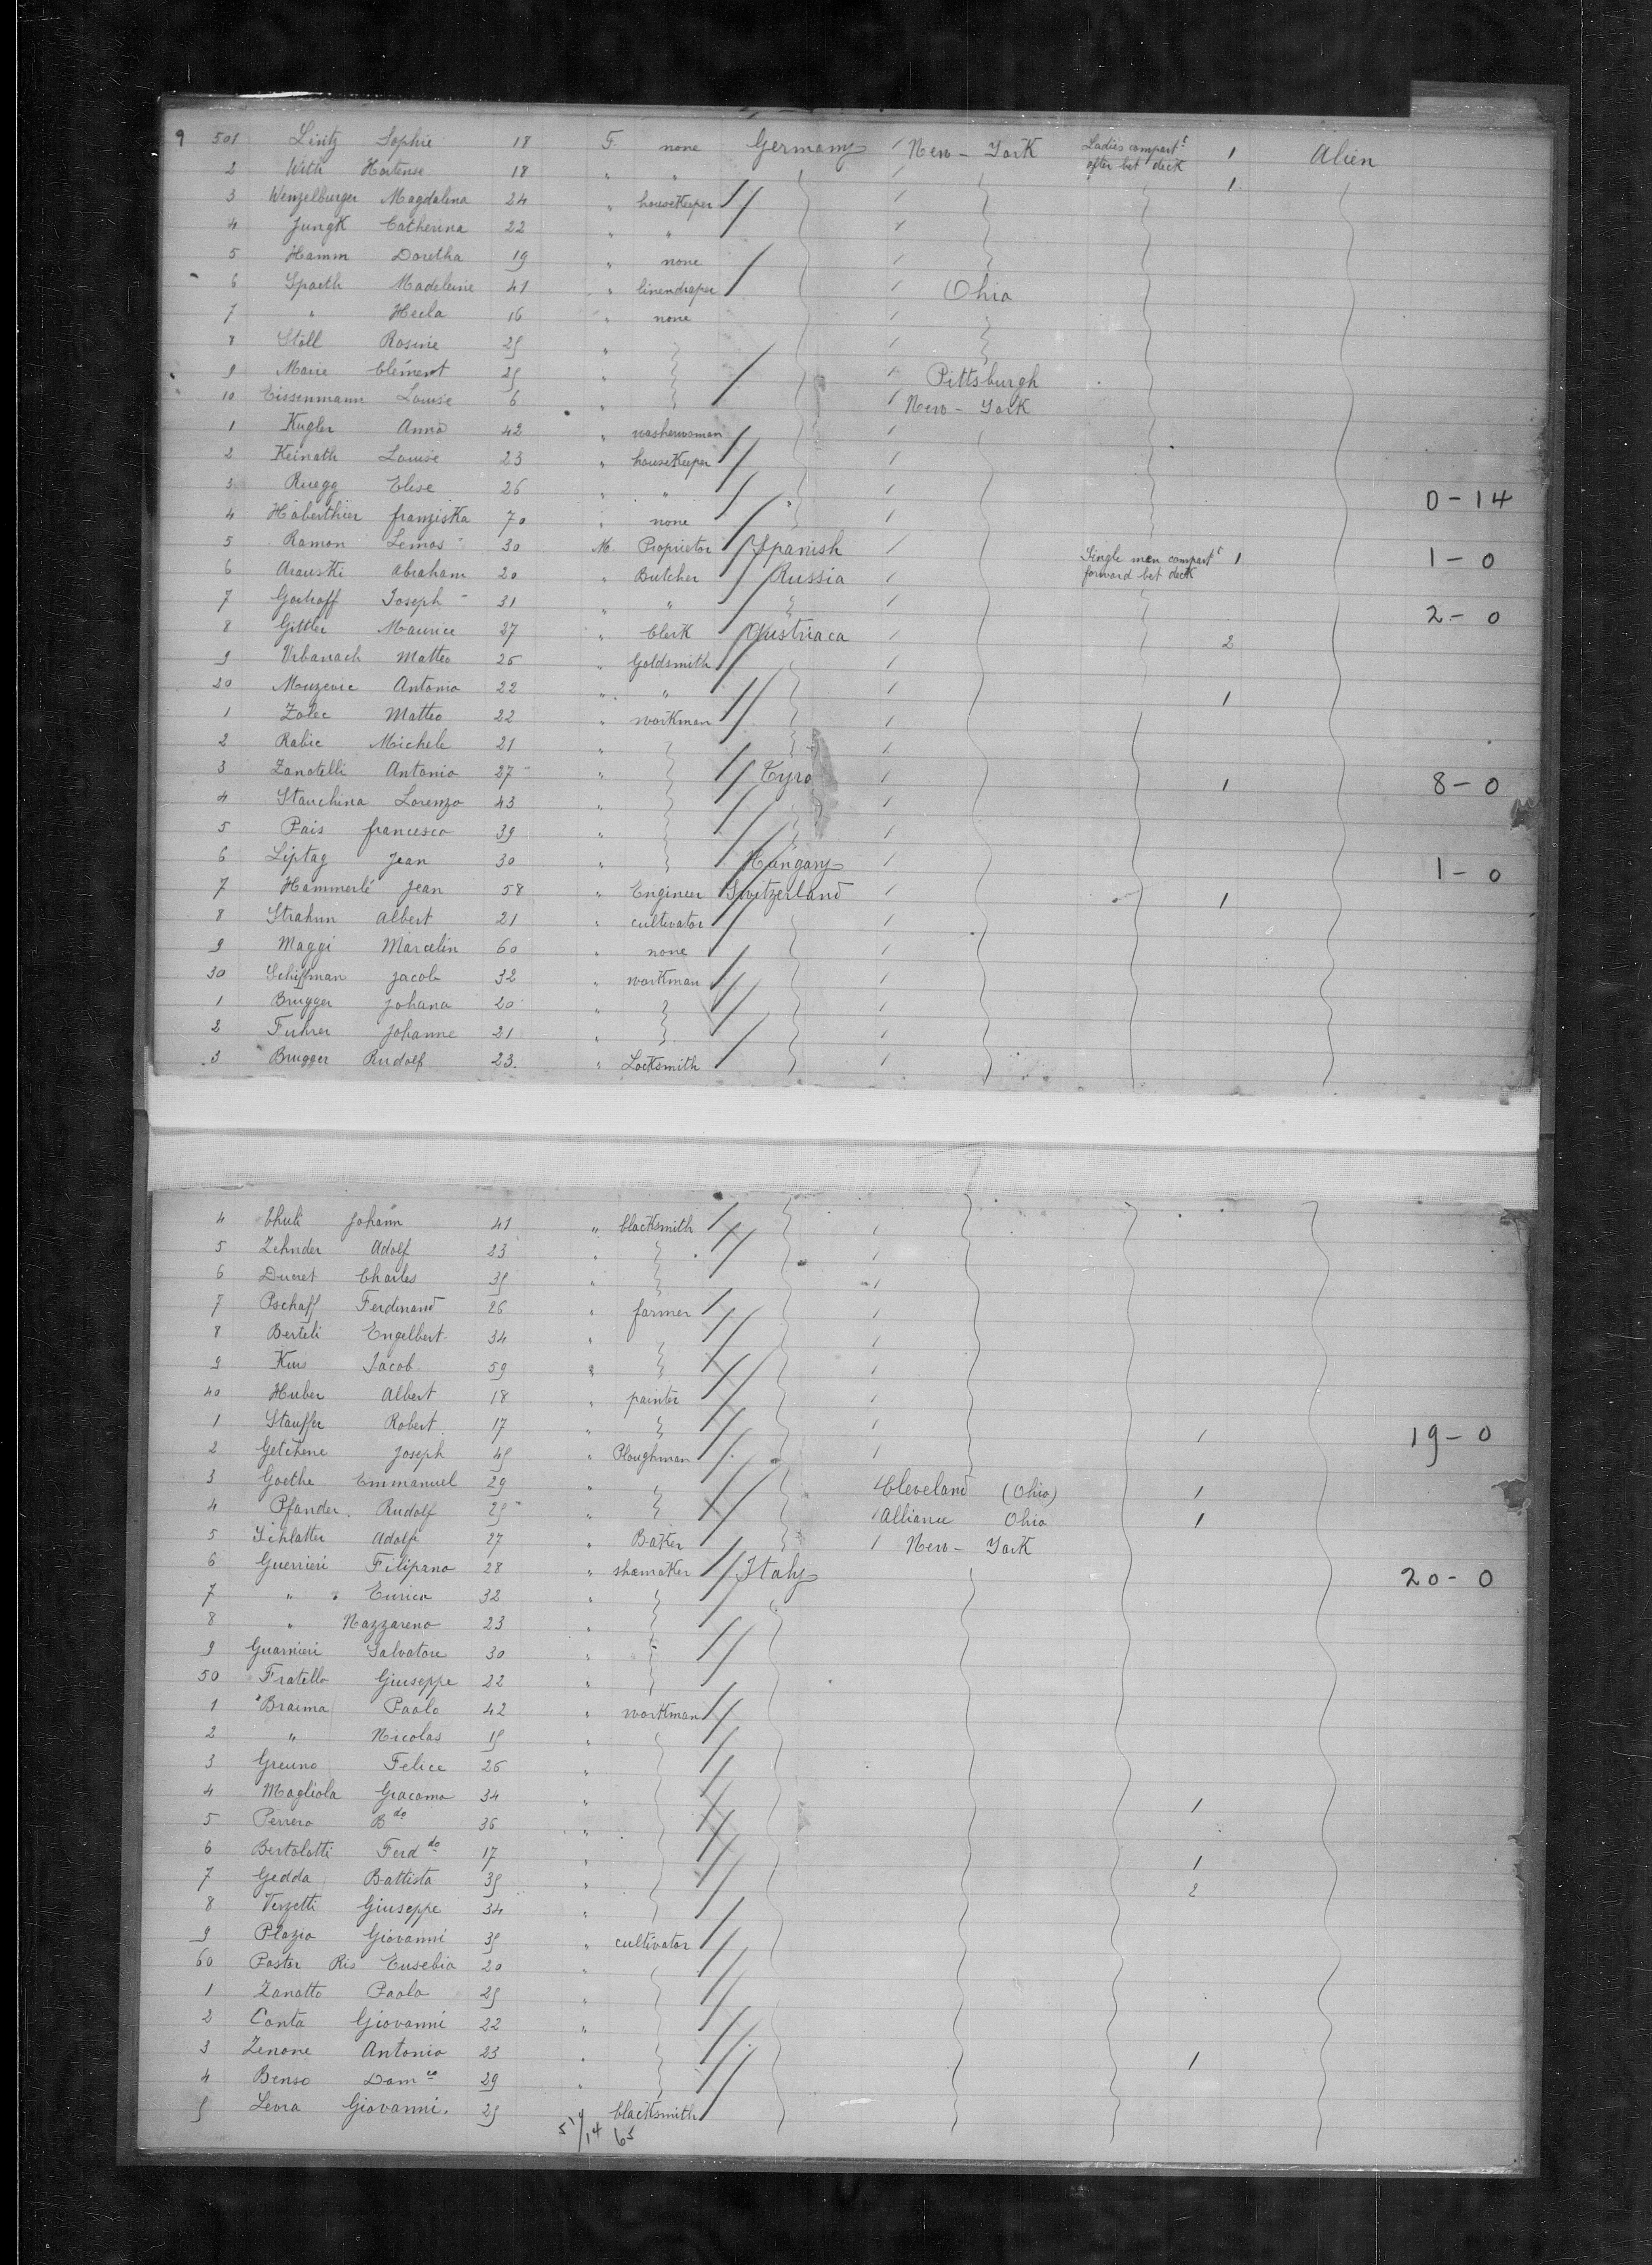 9 501 Lintz Sophie 18 F. none Germany / New-York Ladies compart.t after bet deck 1 Alien
2 With Hortense 18 " " / 1
3 Wenzelburger Magdalena 24 " housekeeper /
4 Jungk Catherina 22 " " /
5 Hamm Doretha 19 " none /
6 Spaeth Madeleine 41 " linendraper / Ohio
7 " Hecla 16 " none /
8 Stoll Rosine 25 " /
9 Marie Clément 25 " / Pittsburgh
10 Eissenmann Louise 6 " / New-York
1 Kugler Anna 42 " washerwoman /
2 Keinath Louise 23 " housekeeper /
3 Ruegg Elise 26 " " / 0-14
4 Haberthier franziska 70 " none " /
5 Ramon Lemos 30 M. Proprietor Spanish / Single men compart.t forward bet deck 1 1-0
6 Arauski Abraham 20 " Butcher Russia /
7 Joseph 31 " " / 2-0
8 Gittler Maurice 27 " Clerk Austriaca / 2
9 Urbanach Matteo 25 " Goldsmith /
20 Muzevic Antonio 22 " " / 1
1 Zolec Matteo 22 " workman /
2 Rabic Michele 21 " /
3 Zanotelli Antonio 27 " Tyro / 1 8-0
4 Stanchina Lorenzo 43 " /
5 Pais francesco 39 " /
6 Liptag Jean 30 " Hungary / 1-0
7 Hammerlé Jean 58 " Engineer Switzerland / 1
8 Strahm Albert 21 " cultivator /
9 Maggi Marcelin 60 " none /
30 Schiffman Jacob 32 " workman /
1 Brugger Johana 20 " /
2 Fuhrer Johanne 21 " /
3 Brugger Rudolf 23. " Locksmith /
4 Johann 41 " blacksmith /
5 Zehnder Adolf 23 " /
6 Ducret Charles 35 " /
7 Pschaff Ferdinand 26 " farmer /
8 Berteli Engelbert 34 " /
9 Jacob 59 " /
40 Huber Albert 18 " painter /
1 Stauffer Robert 17 " / 1 19-0
2 Getchene Joseph 45 " Ploughman /
3 Goethe Emmanuel 29 " / Cleveland (Ohio) 1
4 Pfander Rudolf 25 " / Alliance Ohio 1
5 Schlatter Adolf 27 " Baker / New-York
6 Guerrieri Filipano 28 " shamaker Italy 20-0
7 " " Eurico 32 " "
8 " Nazzareno 23 "
9 Guarnieri Salvatore 30 "
50 Fratello Giuseppe 22 "
1 Braima Paolo 42 " workman
2 " Nicolas 15 "
3 Greuno Felice 26 "
4 Magliola Giacomo 34 " 1
5 Perrero B.do 36 "
6 Bertolotti Ferd.do 17 " 1
7 Gedda Battista 35 " 2
8 Verzetti Giuseppe 34 "
9 Plazio Giovanni 35 " cultivator
60 Paster Ris Eusebio 20 "
1 Zanotto Paolo 25 "
2 Conta Giovanni 22 "
3 Zenone Antonio 23 " 1
4 Benso Dom.co 29 "
5 Levra Giovanni. 25 blacksmith
51/14 65